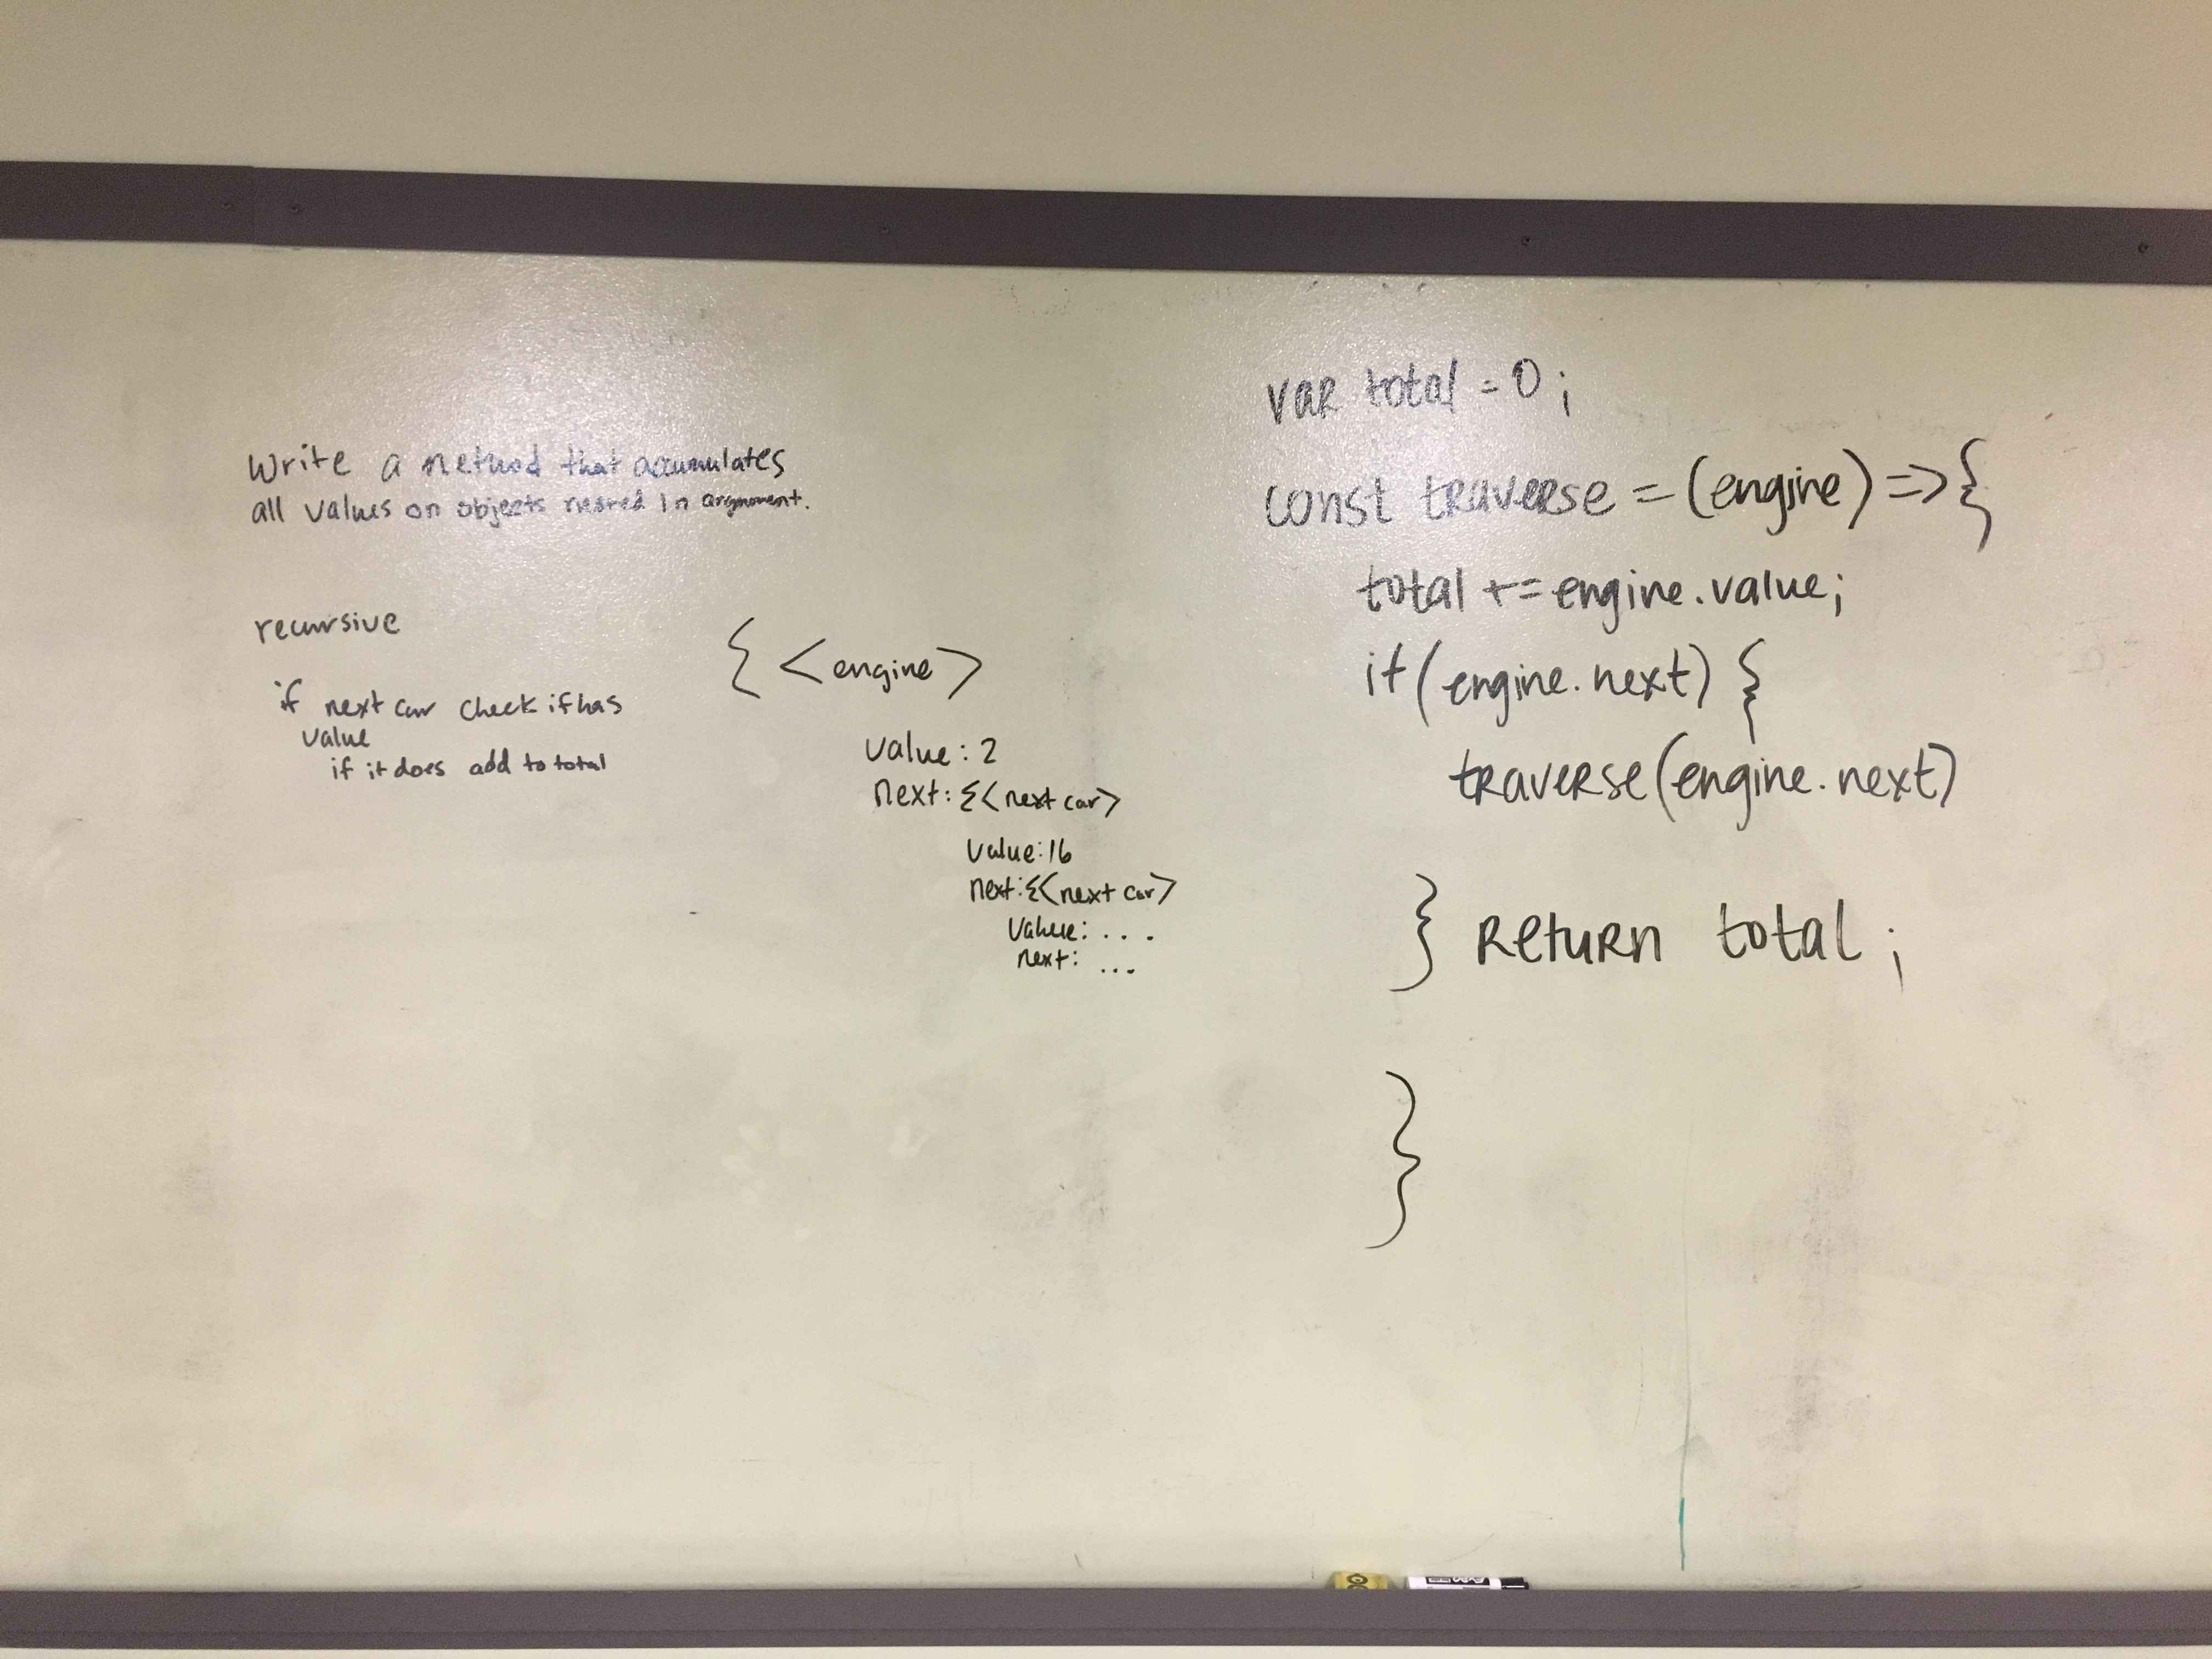 Write a method that accumulates
all values on objects nested in argument.
recursive
if next car check if has
value
if it does add to total
{ <engine>
value: 2
next: {<next car>
value: 16
next: {<next car>
value: ...
next: ...
var total = 0;
const traverse = (engine) => {
total += engine.value;
if (engine.next) {
traverse(engine.next)
} return total;
}